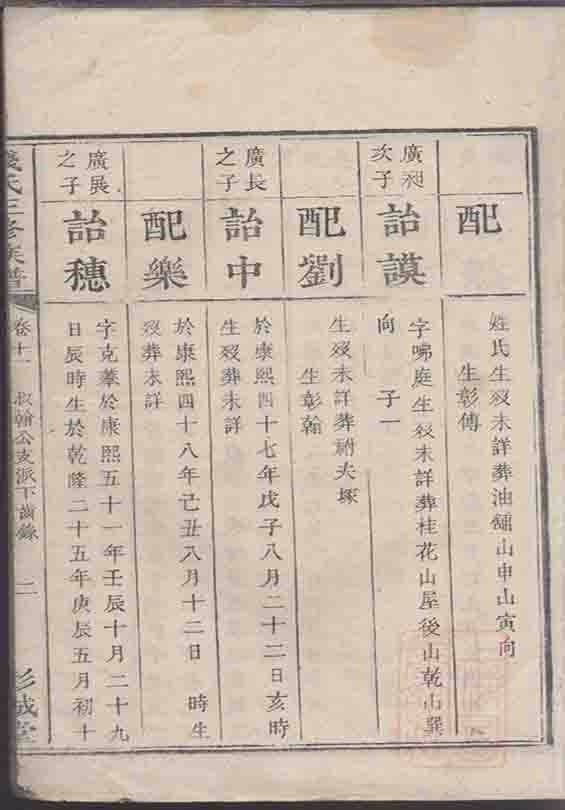 配
姓氏生殁未詳葬油舖山申山寅向
生彰傅
廣昶
次子
詒謨
字嘯庭生殁未詳葬桂花山屋後山乾山巽
向 子一
配劉
生殁未詳葬祔夫塚
生彰翰
廣長
之子
詒中
於康熙四十七年戊子八月二十二日亥時
生殁葬未詳
配樂
於康熙四十八年己丑八月十二日 時生
殁葬未詳
廣展
之子
詒穗
字克蓁於康熙五十一年壬辰十月二十九
日辰時生於乾隆二十五年庚辰五月初十
氏三修族譜
卷十一
叔翰公支派下齒錄
二
彭城堂